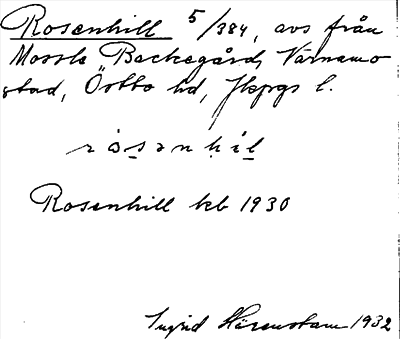 Rosenhill 5/384, avs från
Mossle "Backegård, Värnamo
stad, Östbo hd, Jkpgs l.
rosənhil
Rosenhill kb 1930
Ingrid Härenstam 1932